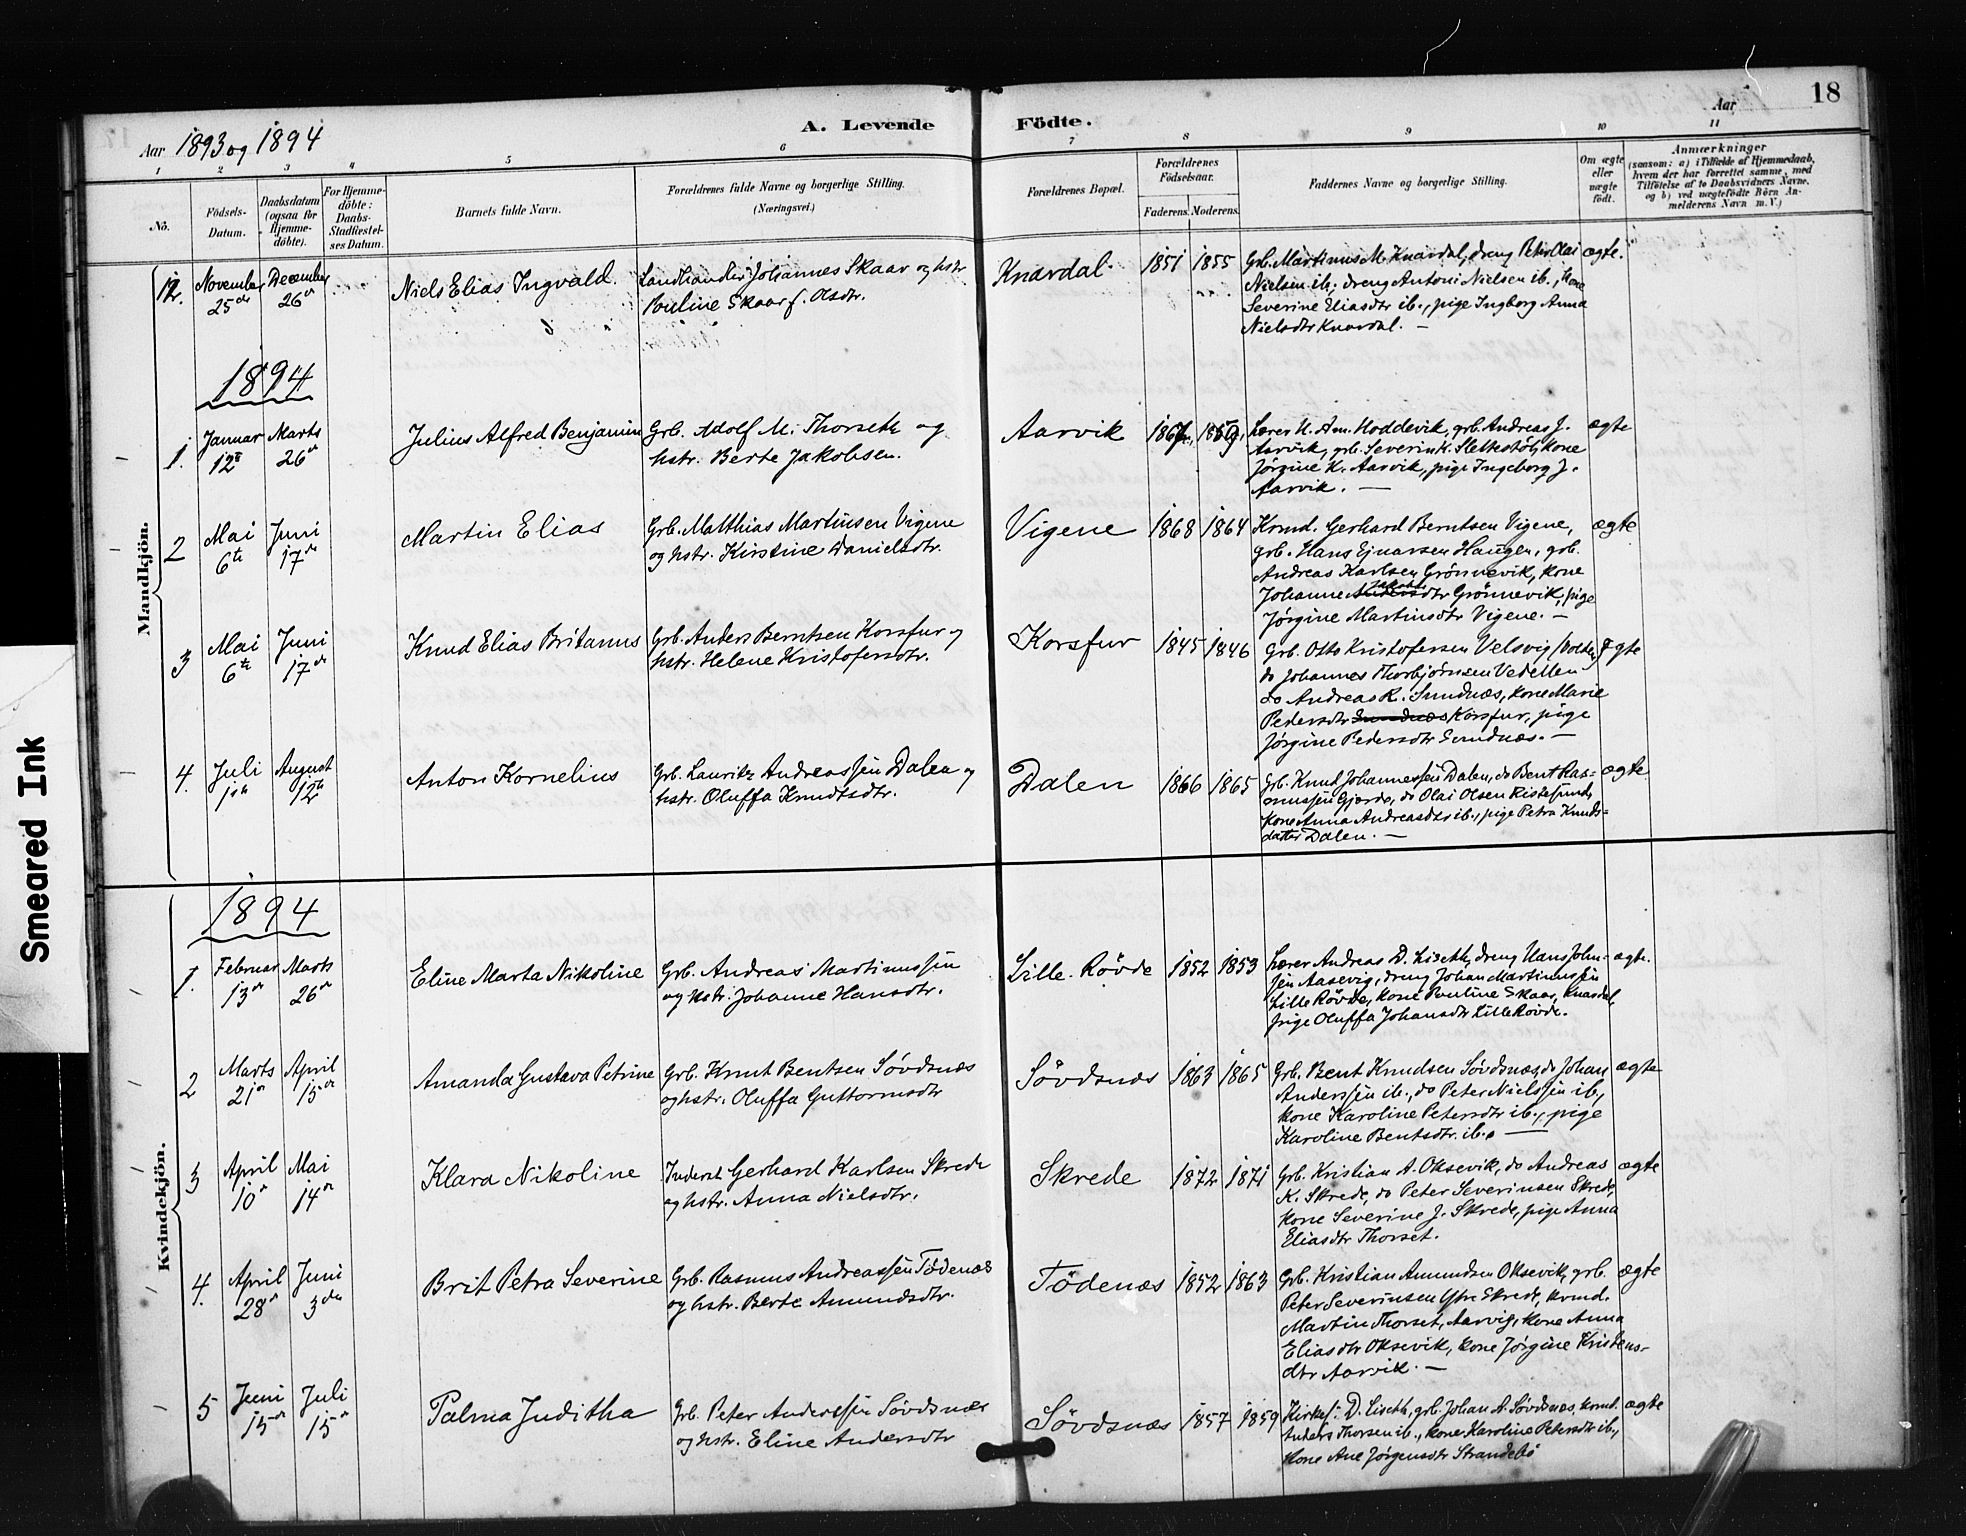 Smeared Ink
18
A. Levende Födte.
Aar 1893 og 1894
Aar
1 2 3 4 5 6 7 8 9 10 11
No.
Födsels-
Datum.
Daabsdatum
(ogsaa for
Hjemme-
döbte).
For Hjemme-
döbte:
Daabs-
Stadfæstel-
ses Datum.
Barnets fulde Navn.
Forældrenes fulde Navne og borgerlige Stilling.
(Næringsvei.)
Forældrenes Bopæl.
Forældrenes
Födselsaar.
Faderens. Moderens.
Faddernes Navne og borgerlige Stilling.
Om ægte
eller
uægte
födt.
Anmærkninger
(saasom: a) i Tilfælde af Hjemmedaab,
hvem der har forrettet samme, med
Tilföielse af to Daabsvidners Navne.
og b) ved uægtefödte Börn An-
melderens Navn m. V.)
Mandkjön.
12. November 25de December 26de
Niels Elias Ingvald.
Landhandler Johannes Skaar og hstr
Pauline Skaar f. Olsdtr.
Knardal. 1851 1855
Grb. Martinus M. Knardal, dreng Peter Olai
Nielsen ib., dreng Antoni Nielsen ib., kone
Severine Eliasdtr ib., pige Ingborg Anna
Nielsdtr Knardal. —
ægte.
1894
1. Januar 12te Marts 26de
Julius Alfred Benjamin
Grb. Adolf M. Thorseth og
hstr. Berte Jakobsen.
Aarvik
Lærer H. Am. Hoddevik, grb. Andreas J.
Aarvik, grb. Severin K. Slettestöl, kone
Jörgine K. Aarvik, pige Ingeborg J.
Aarvik. —
ægte
2 Mai 6te Juni 17de
Martin Elias
Grb. Matthias Martinsen Vigene
og hstr. Kirstine Danielsdtr.
Vigene 1868 1864
Krmd. Gerhard Berntsen Vigene,
grb. Hans Ejnarsen Haugen, grb.
Andreas Karlsen Grönnevik, kone
Johanne Andersdtr Grönnevik, pige
Jörgine Martinsdtr Vigene. —
ægte
3 Mai 6te Juni 17de
Knud Elias Britanus
Grb. Anders Berntsen Korsfur og
hstr. Helene Kristofersdtr.
Korsfur 1845 1846
Grb. Otto Kristofersen Velsvig
do Johannes Thorbjörnsen Vedellen
do Andreas R. Sundnæs, kone Marie
Pedersdtr Sundnæs Korsfur, pige
Jörgine Pedersdtr Sundnæs. —
ægte
4. Juli 1ste August 12te
Anton Kornelius
Grb. Lauritz Andreassen Dalen og
hstr. Oluffa Knudtsdtr.
Dalen 1866 1865
Grb. Knud Johannessen Dalen, do Bent Ras-
mussen Gjerde, do Olai Olsen Ristesund,
kone Anna Andreasdtr ib., pige Petra Knuds-
datter Dalen. —
ægte
Kvindekjön.
1894
1. Februar 13de Marts 26de
Eline Marta Nikoline
Grb. Andreas Martinussen
og hstr. Johanne Hansdtr.
Lille-Rövde 1852 1853
Lærer Andreas D. Liseth, dreng Hans John-
sen Aasevig, dreng Johan Martinussen
Lille Rövde, kone Pauline Skaar, Knardal,
pige Oluffa Johansdtr Lille Rövde.
ægte.
2 Marts 21de April 15de
Amanda Gustava Petrine
Grb. Knut Bentsen Sövdsnæs
og hstr. Oluffa Guttormsdtr
Sövdsnæs 1863 1865
Grb. Bent Knudsen Sövdsnæs, do Johan
Anderssen ib., do Peter Nielssen ib.,
kone Karoline Petersdtr ib., pige
Karoline Bentsdtr. ib. —
ægte
3 April 10de Mai 14de
Klara Nikoline
Inderst Gerhard Karlsen Skrede
og hstr. Anna Nielsdtr.
Skrede 1872 1871
Grb. Kristian A. Oksevik, do Andreas
K. Skrede, do Peter Severinsen Skrede,
kone Severine J. Skrede, pige Anna
Eliasdtr Thorset.
ægte
4. April 28de Juni 3die
Brit Petra Severine
Grb. Rasmus Andreassen Tödenæs
og hstr. Berte Amundsdtr.
Tödenæs 1852 1863
Grb. Kristian Amundsen Oksevik, grb.
Peter Severinsen Ytre Skrede, krmd.
Martin Thorset, Aarvig, kone Anna
Eliasdtr Oksevik, kone Jörgine Kristens-
dtr Aarvik. —
ægte
5 Juni 15de Juli 15de
Palma Juditha
Grb. Peter Anderssen Sövdsnæs
og hstr. Eline Andersdtr
Sövdsnæs 1857 1859
Kirkes. D. Liseth, grb. Johan A. Sövdsnæs, krmd.
Anders Thorsen ib., kone Karoline Petersdtr ib.,
kone Ane Jörgensdtr Strandebö
ægte